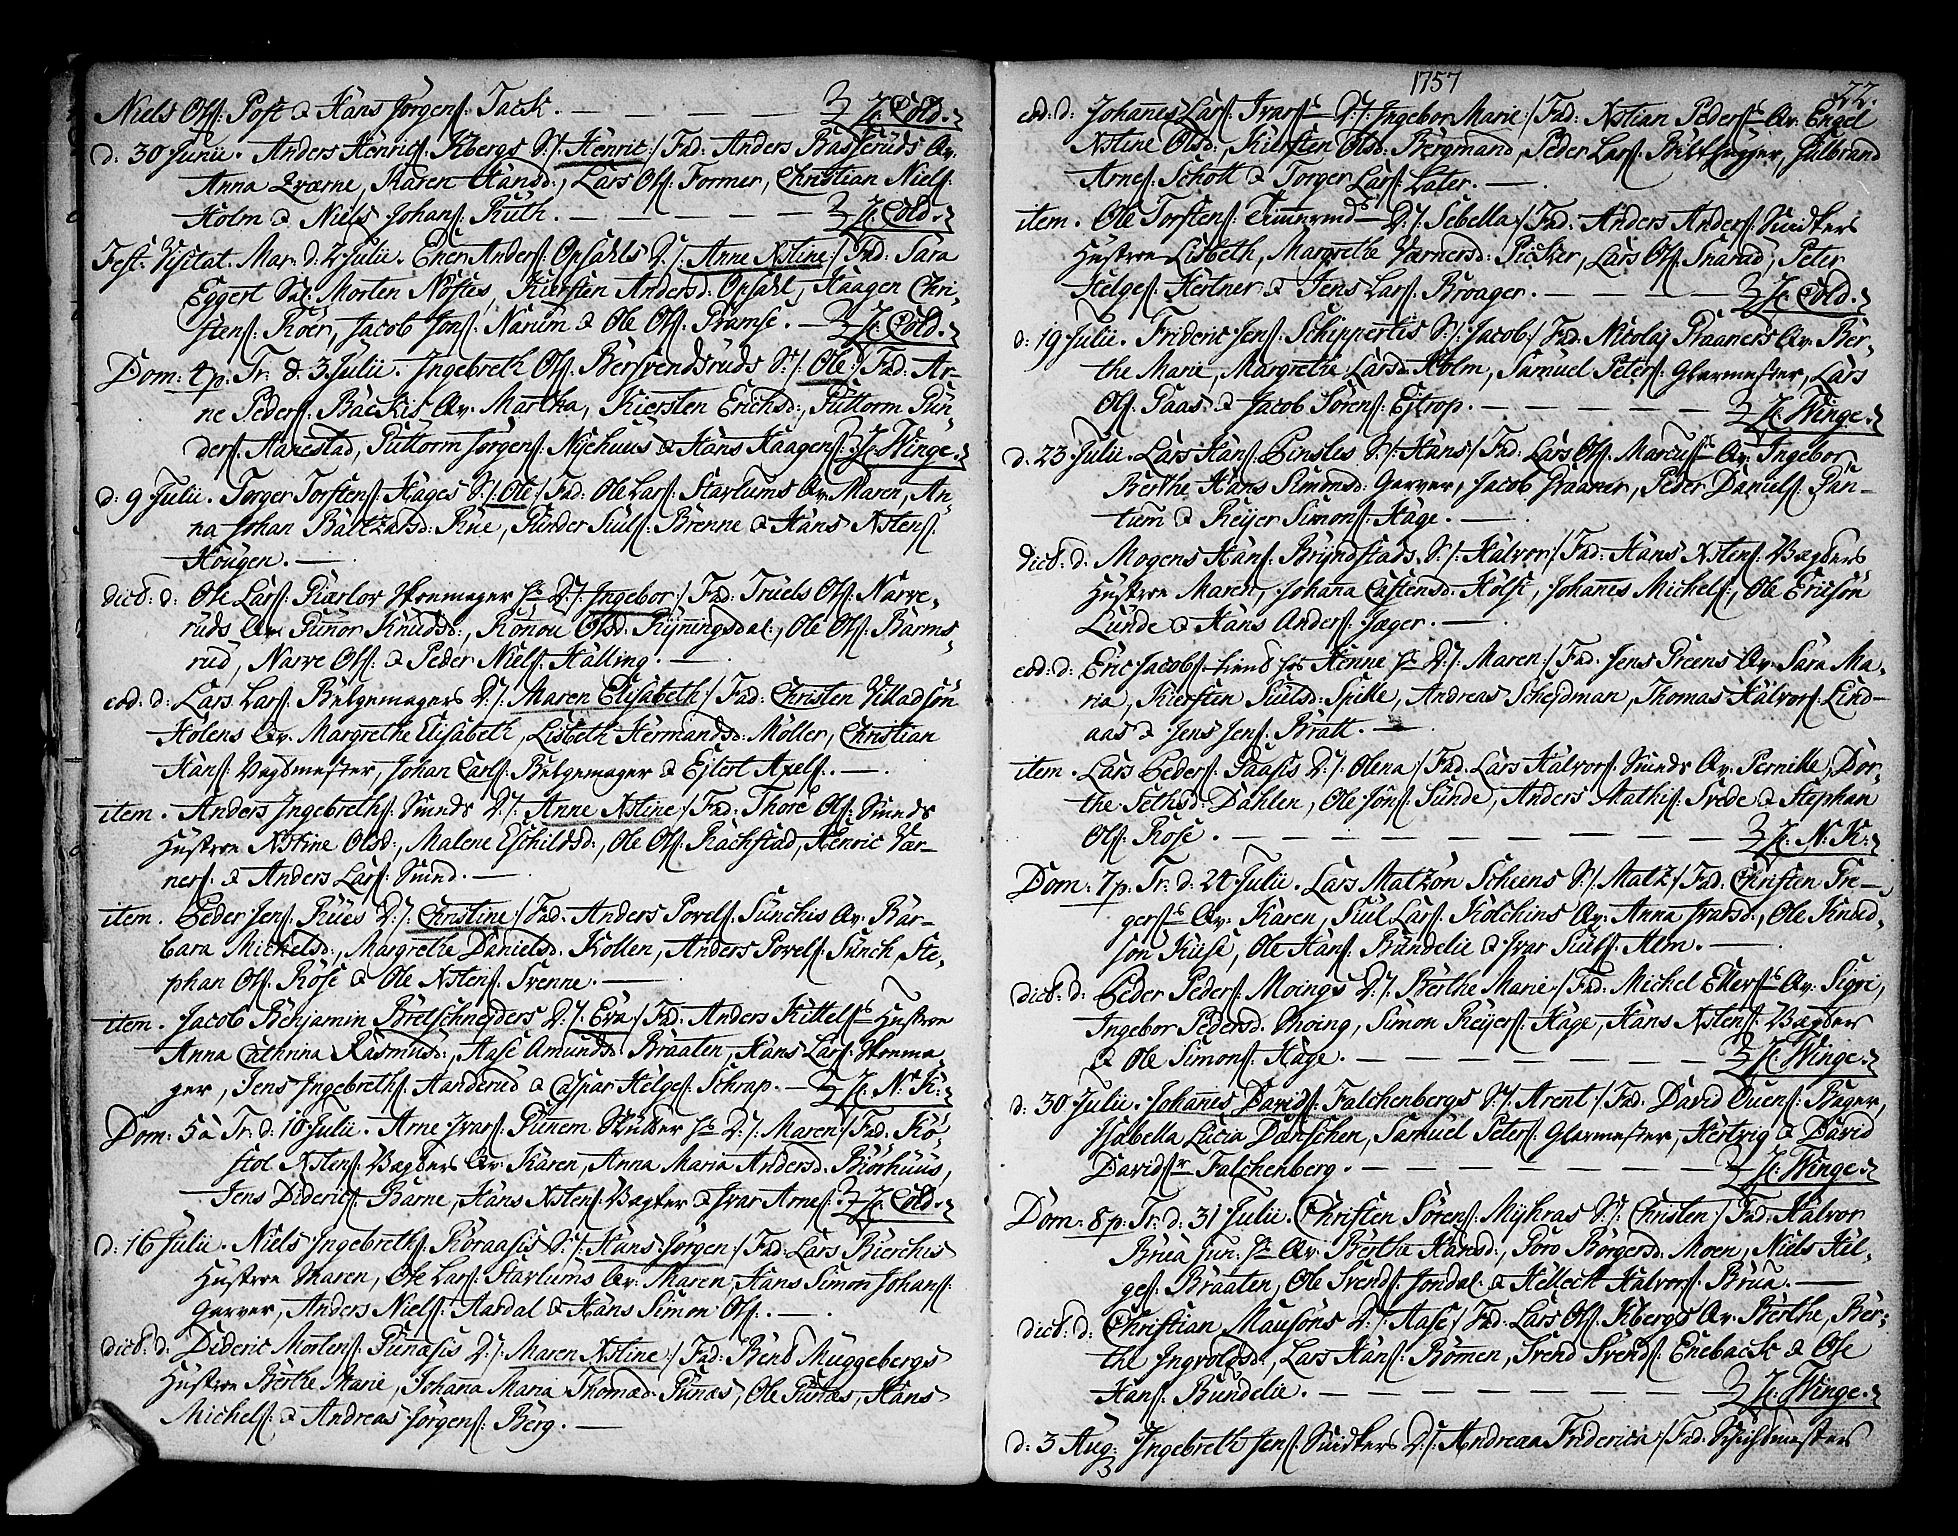 Niels Ols: Post & Hans Jörgens: Tack. — — — — H: Cold.
d: 30 Junii. Anders Henrics: Kbergs S:/: Henric:/ Fad: Anders Basseruds Qv.
Anna Qværne, Karen Hansd:, Lars Ols: Former, Christian Niels:
Holm & Niels Johans: Ruth. — — — — — H: Cold.
Fest: Visitat. Mar: d: 2 Julii. Ener Anders: Opsahls D:/: Anne Xstine:/ Fad: Sara
Eggert Sal: Morten Nöstes, Kiersten Andersd: Opsahl, Haagen Chri-
stens: Röer, Jacob Jons: Narum & Ole Ols: Gramse. — H: Cold.
Dom: 4 p: Tr: d: 3 Julii. Ingebreth Ols: Bersvendsruds S:/: Ole:/ Fad: Ar-
ne Peders: Backis Qv. Martha, Kiersten Erichsd:, Guttorm Gun-
ders: Hanestad, Guttorm Jörgens: Nyehuus & Hans Haagens: H: Winge.
d: 9 Julii. Torger Torstens: Hages S:/: Ole:/ Fad: Ole Lars: Starlums Qv. Maren, An-
na Johan Baltzarsd: Rue, Gunder Siuls: Brenne & Hans Xstens:
Hougen. —
dict: d: Ole Lars: Skomager D:/: Ingebor:/ Fad: Truels Ols: Narve-
ruds Qv. Gunor Knudsd:, Ronou Olsd: Ryningsdal, Ole Ols: Barms-
rud, Narve Ols: & Peder Niels: Halling. —
eod: d: Lars Lars: Belgemagers D:/: Maren Elisabeth:/ Fad: Christen Villadsön
Holens Qv. Margrethe Elisabeth, Lisbeth Hermandsd: Möller, Christian
Hans: Vagtmester, Johan Carls: Belgemager & Ejlert Axels: —
item. Anders Ingebreths: Smeds D:/: Anne Xstine:/ Fad: Thore Ols: Smeds
Hustroe Xstine Olsd:, Malene Eschildsd:, Ole Ols: Rachstad, Henric Var-
ners: & Anders Lars: Smed. —
item. Peder Jens: Rues D:/: Christine:/ Fad: Anders Povels: Sunchis Qv. Bar-
bara Michelsd:, Margrethe Danielsd: Kollen, Anders Povels: Sunch, Ste-
phan Ols: Röse & Ole Xstens: Svenne. —
item. Jacob Benjamin Bretschneyders D:/: Eva:/ Fad: Anders Kittels: Hustroe
Anna Cathrina Rasmusd:, Aase Amundsd: Braaten, Hans Lars: Skomma-
ger, Jens Ingebreths: Haanderud & Caspar Helges: Schrap. — H: N: K:
Dom: 5 à Tr: d: 10 Julii. Arne Ivars: Gunem D:/: Maren:/ Fad: Kö-
stol Xstens: Vagters Qv. Karen, Anna Maria Andersd: Biörhuus,
Jens Diderics: Barne, Hans Xstens: Vagter & Ivar Arnes: H: Cold.
d: 16 Julii. Niels Ingebreths: Koraasis S:/: Hans Jörgen:/ Fad: Lars Bierchis
Hustroe Maren, Ole Lars: Starlums Qv. Maren, Hans Simon Johans:
Garver, Anders Niels: Aardal & Hans Simon Ols: —
dict: d: Dideric Mortens: Gunæsis D:/: Maren Xstine:/ Fad: Bent Muggebergs
Hustroe Berthe Marie, Johanna Maria Thomasd: Gunæs, Ole Gunæs, Hans
Michels: & Andreas Jörgens: Berg. —
1757
22.
eod: d: Johannes Lars: Ivars: D:/: Ingebor Marie:/ Fad: Xstian Peders: Qv. Engel
Xstine Olsd:, Kiersten Olsd: Bergmand, Peder Lars: Bilthugger, Gulbrand
Arnes: Schott & Torger Lars: Later. —
item. Ole Torstens: Tømermds D:/: Sebella:/ Fad: Anders Anders: Snidkers
Hustroe Lisbeth, Margrethe Varnersd: Picker, Lars Ols: Snarud, Peter
Helges: Hertner & Jens Lars: Broager. — — — — H: Cold.
d: 19 Julii. Frideric Jens: Schippertis S:/: Jacob:/ Fad: Nicolaj Praaners Qv. Ber-
the Marie, Margrethe Larsd: Holm, Samuel Peters: Glarmester, Lars
Ols: Gaas & Jacob Sörens: Ejtrop. — — — — — H: Winge.
d. 23 Julii. Lars Hans: S:/: Hans:/ Fad: Lars Ols: Qv. Ingebor,
Berthe Hans Simonsd: Garver, Jacob Praaner, Peder Daniels: Pan-
tum & Reyer Simons: Hage. —
dict: d: Mogens Hans: Bryndstads S:/: Halvor:/ Fad: Hans Xstens: Vagters
Hustroe Maren, Johana Castensd: Holst, Johanes Michels:, Ole Ericsön
Lunde & Hans Anders: Jæger. —
eod: d: Eric Jacobs: D:/: Maren:/ Fad: Jens Greens Qv. Sara Ma-
ria, Kiersten Siulsd: Spille, Andreas Schejdman, Thomas Halvors: Lind-
aas & Jens Jens: Bratt. —
item. Lars Peders: Gaasis D:/: Olena:/ Fad: Lars Halvors: Smeds Qv. Pernille, Dor-
the Sethsd: Dahlen, Ole Jöns: Sunde, Anders Mathis: Svede & Stephan
Ols: Röse. — — — — — — — H: N: K:
Dom: 7 p: Tr: d: 24 Julii. Lars Matzön Scheens S:/: Matz:/ Fad: Christen Tre-
gers: Qv. Karen, Siul Lars: Kolchins Qv. Anna Ivarsd:, Ole Knud-
sön Kiise, Ole Hans: Bundelie & Ivar Siuls: Alm. —
dict: d: Peder Peders: Moings D:/: Berthe Marie:/ Fad: Michel Qv. Sigri,
Ingebor Pedersd. Moing, Simon Reyers: Hage, Hans Xstens: Vagter
& Ole Simons: Hage. — — — — — — H: Winge.
d: 30 Julii. Johanes Davids: Falchenbergs S:/: Arent:/ Fad: David Ouens: Bager,
Isabella Lucia Danschen, Samuel Peters: Glarmester, Hertvig & David
Davids: Falchenberg. — — — — — — — H: Winge.
Dom: 8 p: Tr: d: 31 Julii. Christen Sörens: Myhras S:/: Christen:/ Fad: Halvor
Brua jun: Qv. Berthe Hansd:, Goro Börgersd: Moen, Niels Hel-
ges: Braaten, Ole Svends: Jondal & Helleck Halvors: Brua. —
dict: d: Christian Mausöns D:/: Aase:/ Fad: Lars Ols: Kbergs Qv. Berthe, Ber-
the Ingvoldsd:, Lars Hans: Bömen, Svend Svends: Eneback & Ole
Hans: Bundelie. — — — — — — — H: Winge.
d: 3 Aug: Ingebreth Jens: Snidkers D:/: Andrea Friderica:/ Fad: Schichtmesters
3